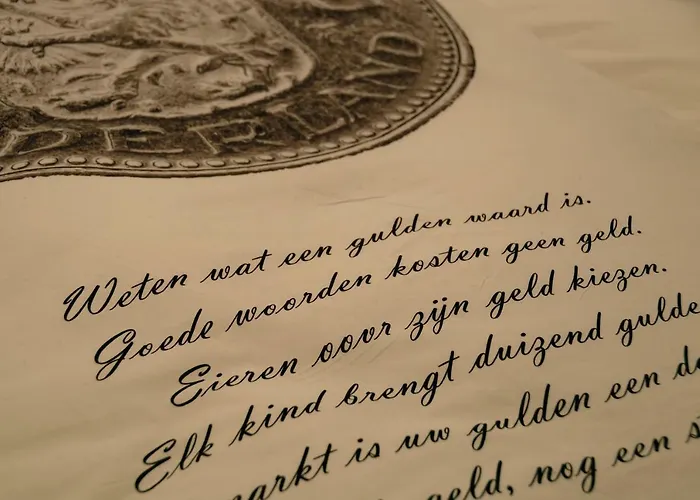 DERLAND
Weten wat een gulden waard is.
Goede woorden kosten geen geld.
Eieren oovr zijn geld kiezen.
Elk kind brengt duizend gulde
arkt is uw gulden een d
geld, nog een s